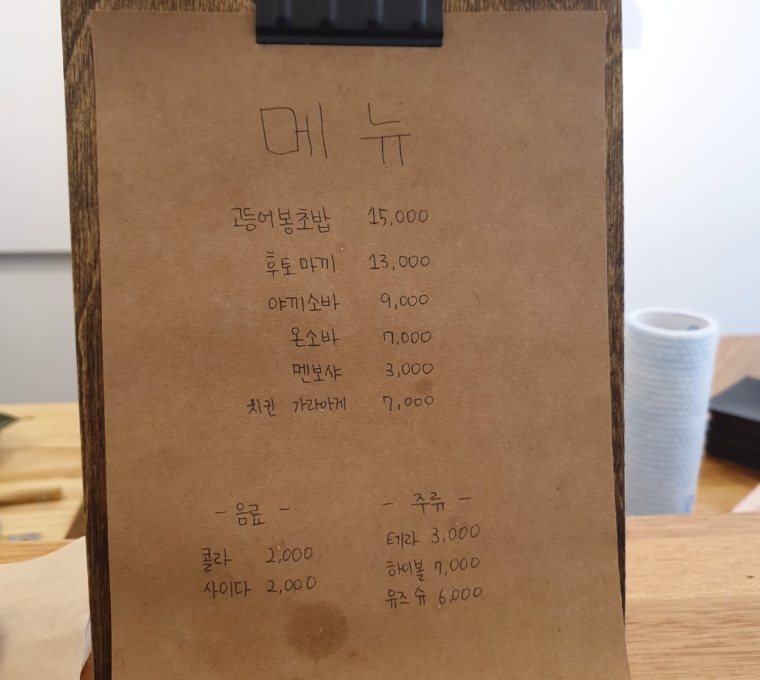 메뉴
고등어봉초밥 15,000
후토마끼 13,000
야끼소바 9,000
온소바 7,000
멘보샤 3,000
치킨 가라아게 7,000
- 음료 -
콜라 2,000
사이다 2,000
- 주류 -
테킬라 3,000
하이볼 7,000
유즈슈 6,000